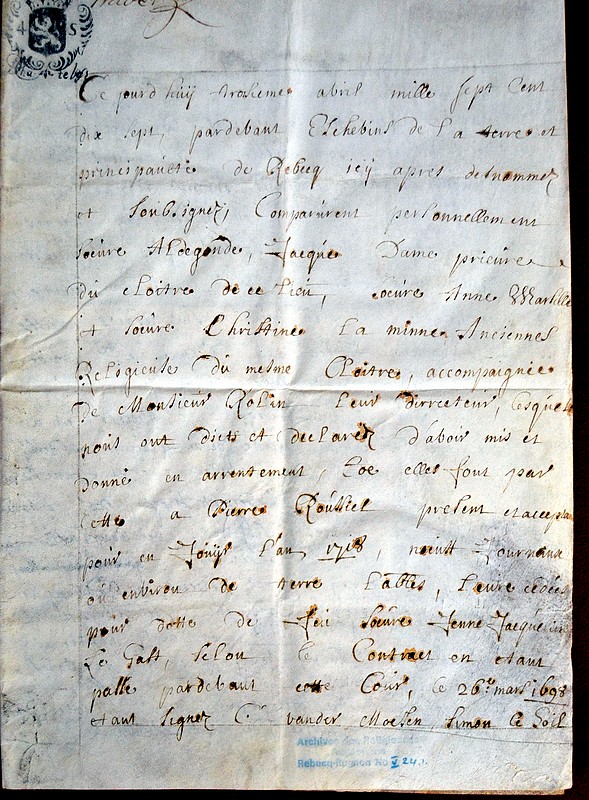 4 S
Ce jourd'huij troisieme abril mille sept cent
dix sept, pardebant Eschebins de la terre et
principauté de Rebecq icij apres denommez
et soubsignez, Comparurent personnellement
soeure Aldegonde, Jacque Dame prieure
du cloitre de ce lieu, soeure Anne
et soeure Christine la minne Anciennes
Religieuse du mesme Cloitre, accompaignée
De Monsieur Rolin leur dirrecteur, lesquels
nous ont dicts et declarez d'aboir mis et
Donné en arrentement, Coe elles font par
cette a Pierre Roussel present et acceptant
pour en Jouijr l'an 1718, neuff Journaux
ou environ de terre lables, leure cedées
pour dotte de feu soeure Jenne Jacqueline
Le Gast, selon le Contract en etant
passe pardebant cette Cour, le 26e mars 1698
etant signez C. vander Moesen Simon le Soil
Archives des Religieuses
Rebecq-Rognon No V 24.